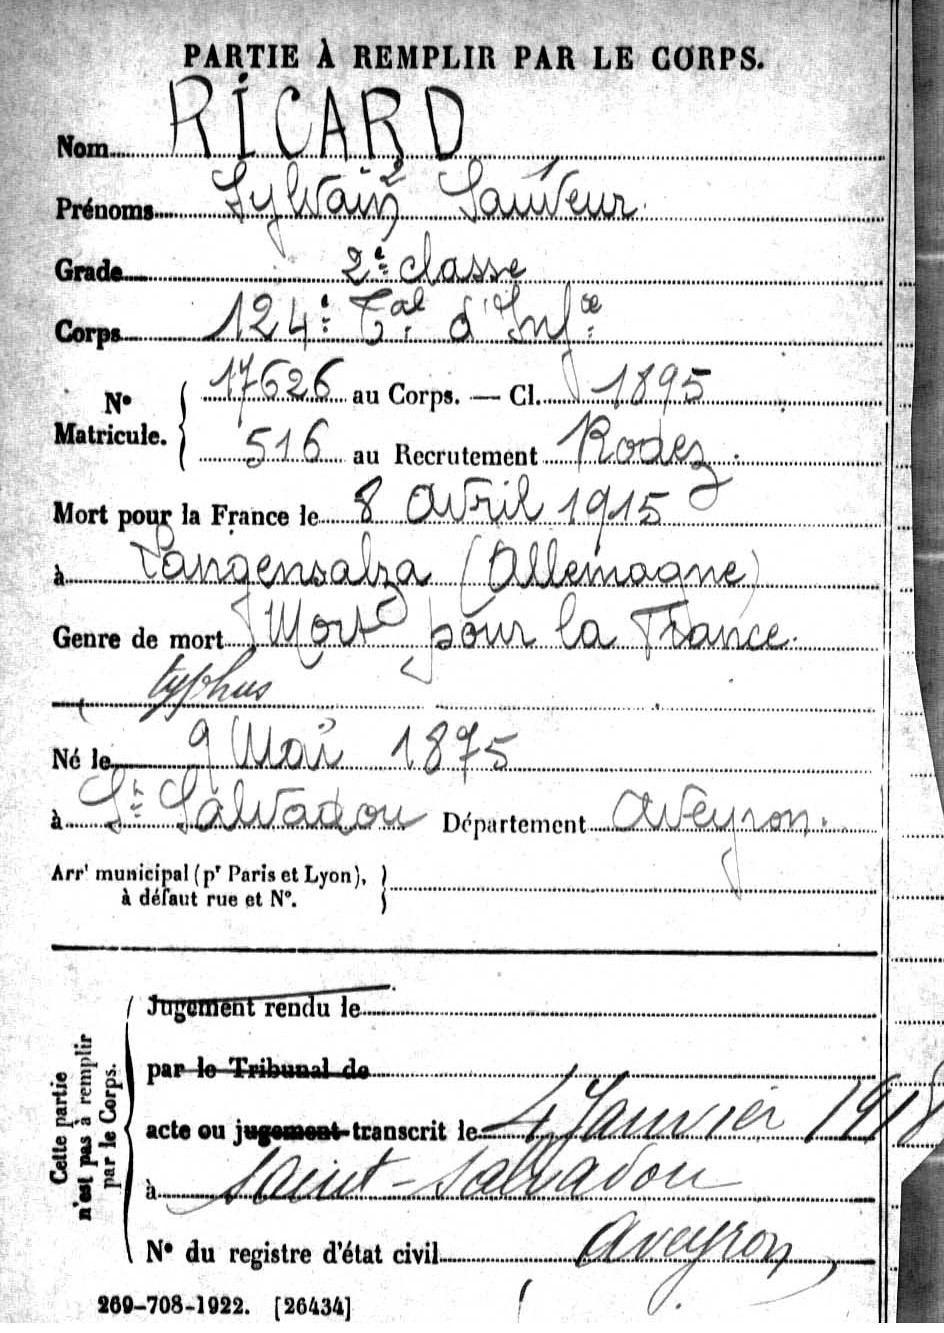 PARTIE À REMPLIR PAR LE CORPS.
Nom RICARD
Prénoms Sylvain Sauveur
2 1
Grade 2e classe
Corps 124e: Tal d'Infie
No Matricule. 17626 au Corps. — Cl. 1895
516 au Recrutement Rodez
Mort pour la France le 8 avril 1915
à Langensalza (Allemagne)
Genre de mort Mort pour la France.
typhus
Né le 9 Mai 1875
à St Salvadou Département Aveyron.
Arrt municipal (pr Paris et Lyon),
à défaut rue et No.
Cette partie n'est pas à remplir par le Corps.
Jugement rendu le
par le Tribunal de
acte ou jugement transcrit le 4 Janvier 1918
à Saint-Salvadou
No du registre d'état civil Aveyron
269-708-1922. [26434]